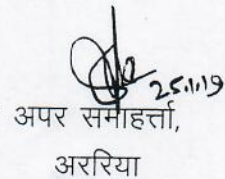 25.1.19
अपर समाहर्त्ता,
अररिया